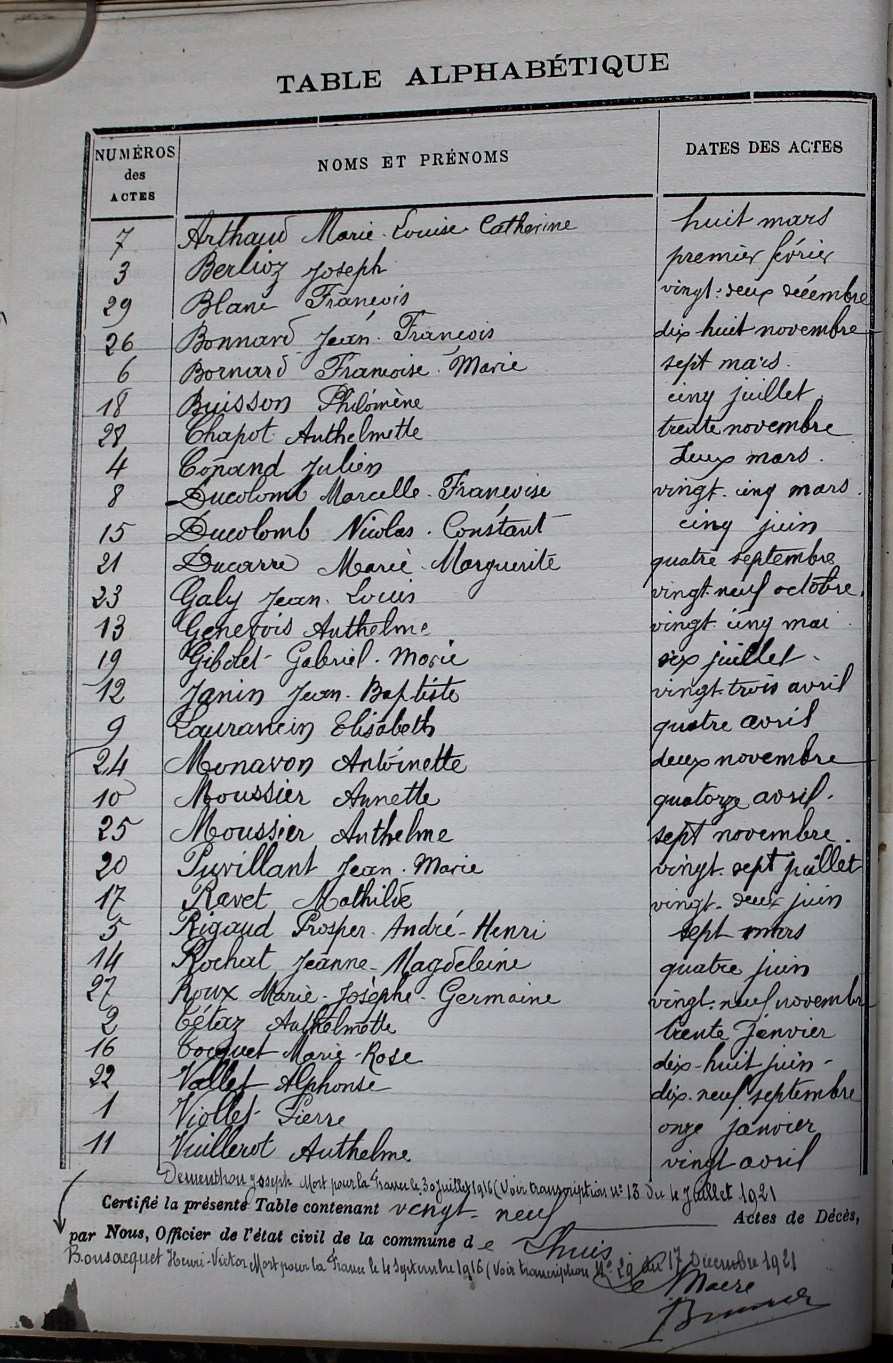 TABLE ALPHABÉTIQUE
NUMÉROS des ACTES NOMS ET PRÉNOMS DATES DES ACTES
7 Arthaud Marie-Louise-Catherine huit mars
3 Berlioz Joseph premier février
29 Blanc François vingt-deux décembre
26 Bonnard Jean-François dix-huit novembre
6 Bornard Françoise-Marie sept mars
18 Buisson Philomène cinq juillet
28 Chapot Anthelmette trente novembre
4 Copand Julien deux mars
8 Ducolomb Marcelle-Françoise vingt-cinq mars
15 Ducolomb Nicolas-Constant cinq juin
21 Ducarre Marie-Marguerite quatre septembre
23 Galy Jean-Louis vingt-neuf octobre
13 Genevois Anthelme vingt-cinq mai
19 Gibolet Gabriel-Marie six juillet
12 Janin Jean-Baptiste vingt-trois avril
9 Laurancin Elisabeth quatre avril
24 Monavon Antoinette deux novembre
10 Moussier Annette quatorze avril
25 Moussier Anthelme sept novembre
20 Puvillant Jean-Marie vingt-sept juillet
17 Ravet Mathilde vingt-deux juin
5 Rigaud Prosper-André-Henri sept mars
14 Rochat Jeanne-Magdeleine quatre juin
27 Roux Marie-Josèphe-Germaine vingt-neuf novembre
2 Tétaz Anthelmette trente janvier
16 Tocquet Marie-Rose dix-huit juin
22 Vallet Alphonse dix-neuf septembre
1 Viollet Pierre onze janvier
11 Vuillerot Anthelme vingt avril
Dementhon Joseph Mort pour la France le 30 Juillet 1916 (Voir transcription N° 18 du 4 Juillet 1921
Certifié la présente Table contenant vingt-neuf Actes de Décès,
par Nous, Officier de l'état civil de la commune de Lhuis
Bonsacquet Henri-Victor Mort pour la France le 4 Septembre 1916 (Voir transcription N° 29 du 17 Décembre 1921
Le Maire